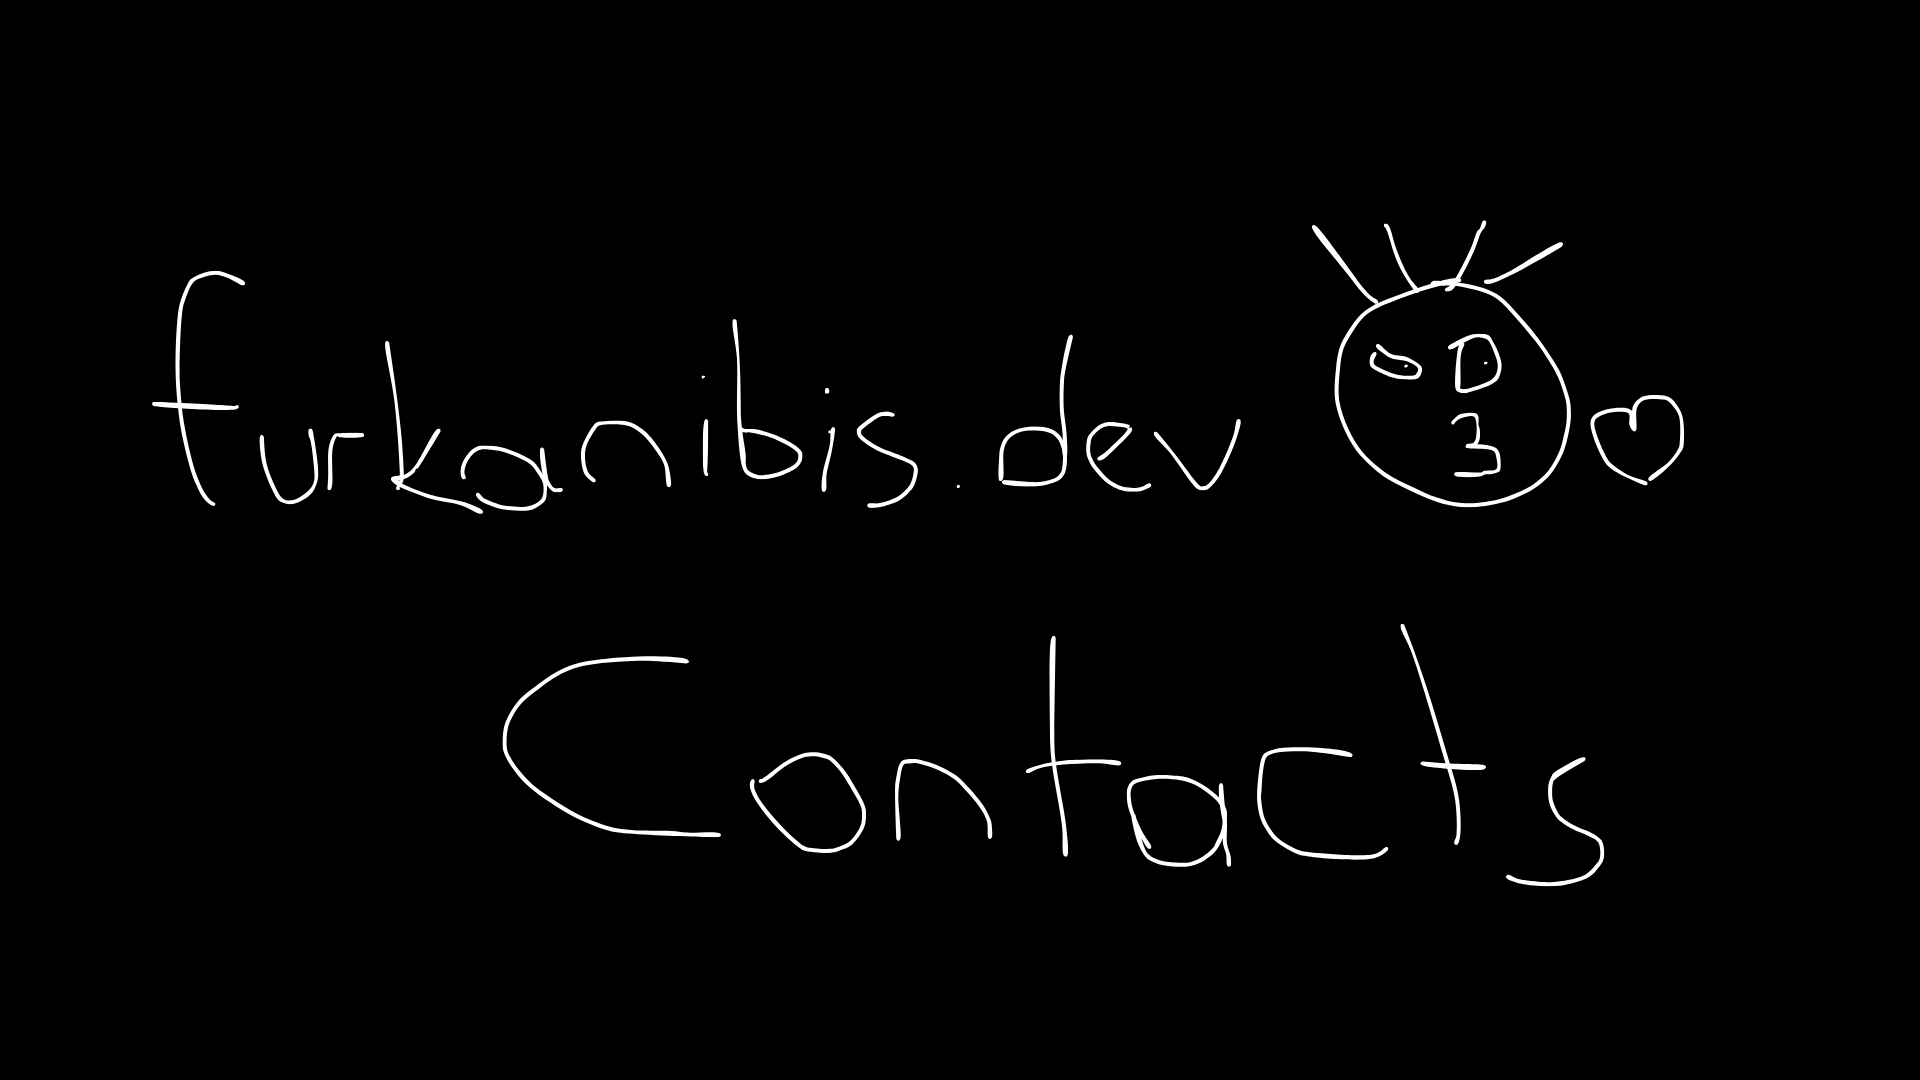 furkanibis.dev
Contacts